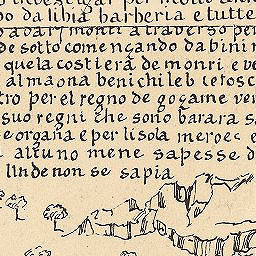 per
da libia barberia e tutte
monti a traverso per
de sotto comenzando da binin
quela costiera de monri e ve
al ma ona beni chileb
tro per el regno de goçame ve
suo regni che sono barara sa
e organa e per lisola meroes e
altuno mene sapesse d
linde non se sapia